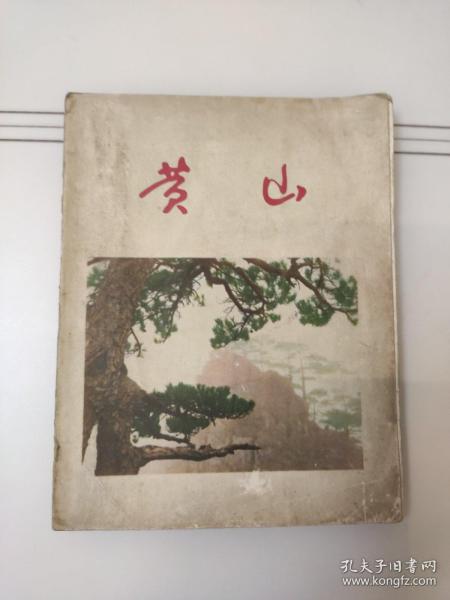 黄山
孔夫子旧书网
www.kongfz.com